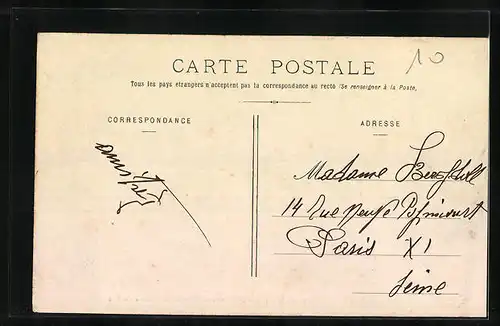 10
CARTE POSTALE
Tous les pays étrangers n'acceptent pas la correspondance au recto (Se renseigner à la Poste.
CORRESPONDANCE
ADRESSE
Madame
14 Rue Neuve Popincourt
Paris XI
Seine